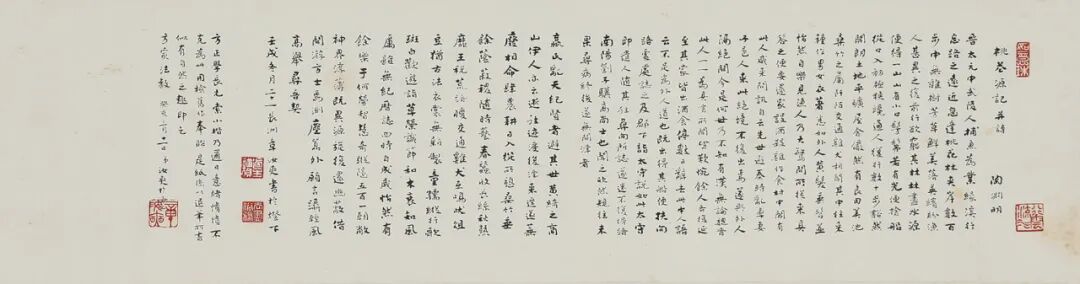 桃花源記并詩 陶淵明
晉太元中武陵人捕魚為業緣溪行
忘路之遠近忽逢桃花林夾岸數百
步中無雜樹芳草鮮美落英繽紛漁
人甚異之復前行欲窮其林林盡水源
便得一山山有小口髣髴若有光便捨船
從口入初極狹纔通人復行數十步豁然
開朗土地平曠屋舍儼然有良田美池
桑竹之屬阡陌交通雞犬相聞其中往來
種作男女衣著悉如外人黃髮垂髫並
怡然自樂見漁人乃大驚問所從來具
答之便要還家設酒殺雞作食村中聞有
此人咸來問訊自云先世避秦時亂率妻
子邑人來此絕境不復出焉遂與外人
隔絕問今是何世乃不知有漢無論魏晉
此人一一為具言所聞皆歎惋餘人各復延
至其家皆出酒食停數日辭去此中人語
云不足為外人道也既出得其船便扶向
路處處誌之及郡下詣太守說如此太守
即遣人隨其往尋向所誌遂迷不復得路
南陽劉子驥高尚士也聞之欣然規往未
果尋病終後遂無問津者
嬴氏亂天紀賢者避其世黃綺之商
山伊人亦云逝往迹浸復湮來逕遂蕪
廢相命肆農耕日入從所憩桑竹垂
餘蔭菽稷隨時藝春蠶收長絲秋熟
靡王稅荒路曖交通雞犬互鳴吠俎
豆猶古法衣裳無新製童孺縱行歌
斑白歡遊詣草榮識節和木衰知風
厲雖無紀曆誌四時自成歲怡然有
餘樂于何勞智慧奇蹤隱五百一朝敞
神界淳薄既異源旋復還幽蔽借
問游方士焉測塵囂外願言躡輕風
高舉尋吾契
壬戌冬月二十一長洲章汝奭書於燈下
方正學長兄索小楷乃適日意緒慵慵不
克為此用檢舊作奉貽是紙以退筆行書
似有自然之趣即乞
方家法教 癸亥六月二日 弟汝奭